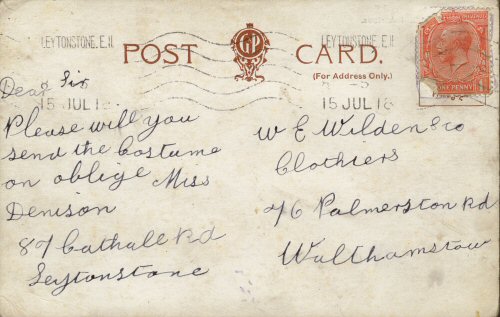 LEYTONSTONE, E.11
LEYTONSTONE, E.11
POST CARD.
(For Address Only.)
15 JUL 18
15 JUL 18
ONE PENNY
Dear Sir
Please will you
send the Costume
on oblige Miss
Denison
87 Cathall Rd
Leytonstone
W E Wilden & Co
Clothiers
76 Palmerston Rd
Walthamstow